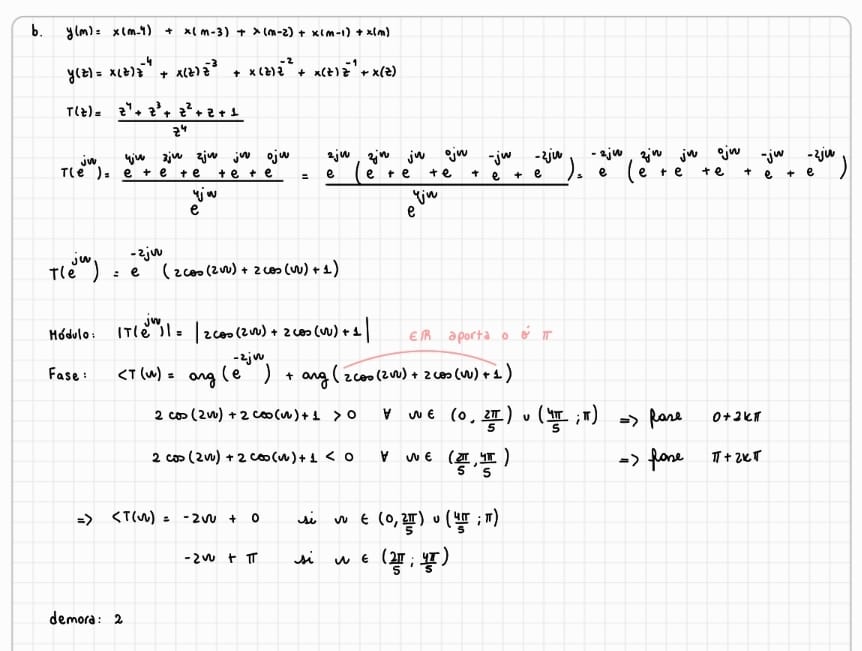 b. y(m) = x(m-4) + x(m-3) + x(m-2) + x(m-1) + x(m)
y(z) = x(z)z^-4 + x(z)z^-3 + x(z)z^-2 + x(z)z^-1 + x(z)
T(z) = (z^4 + z^3 + z^2 + z + 1) / z^4
T(e^jw) = (e^4jw + e^3jw + e^2jw + e^jw + e^0jw) / e^4jw = e^2jw (e^2jw + e^jw + e^0jw + e^-jw + e^-2jw) / e^4jw = e^-2jw (e^2jw + e^jw + e^0jw + e^-jw + e^-2jw)
T(e^jw) = e^-2jw (2cos(2w) + 2cos(w) + 1)
Módulo: |T(e^jw)| = |2cos(2w) + 2cos(w) + 1| ∈ℝ aporta 0 ó π
Fase: <T(w) = arg(e^-2jw) + arg(2cos(2w) + 2cos(w) + 1)
2cos(2w) + 2cos(w) + 1 > 0 ∀ w ∈ (0, 2π/5) ∪ (4π/5 ; π) => fase 0+2kπ
2cos(2w) + 2cos(w) + 1 < 0 ∀ w ∈ (2π/5, 4π/5) => fase π+2kπ
=> <T(w) = -2w + 0 si w ∈ (0, 2π/5) ∪ (4π/5 ; π)
-2w + π si w ∈ (2π/5 ; 4π/5)
demora: 2